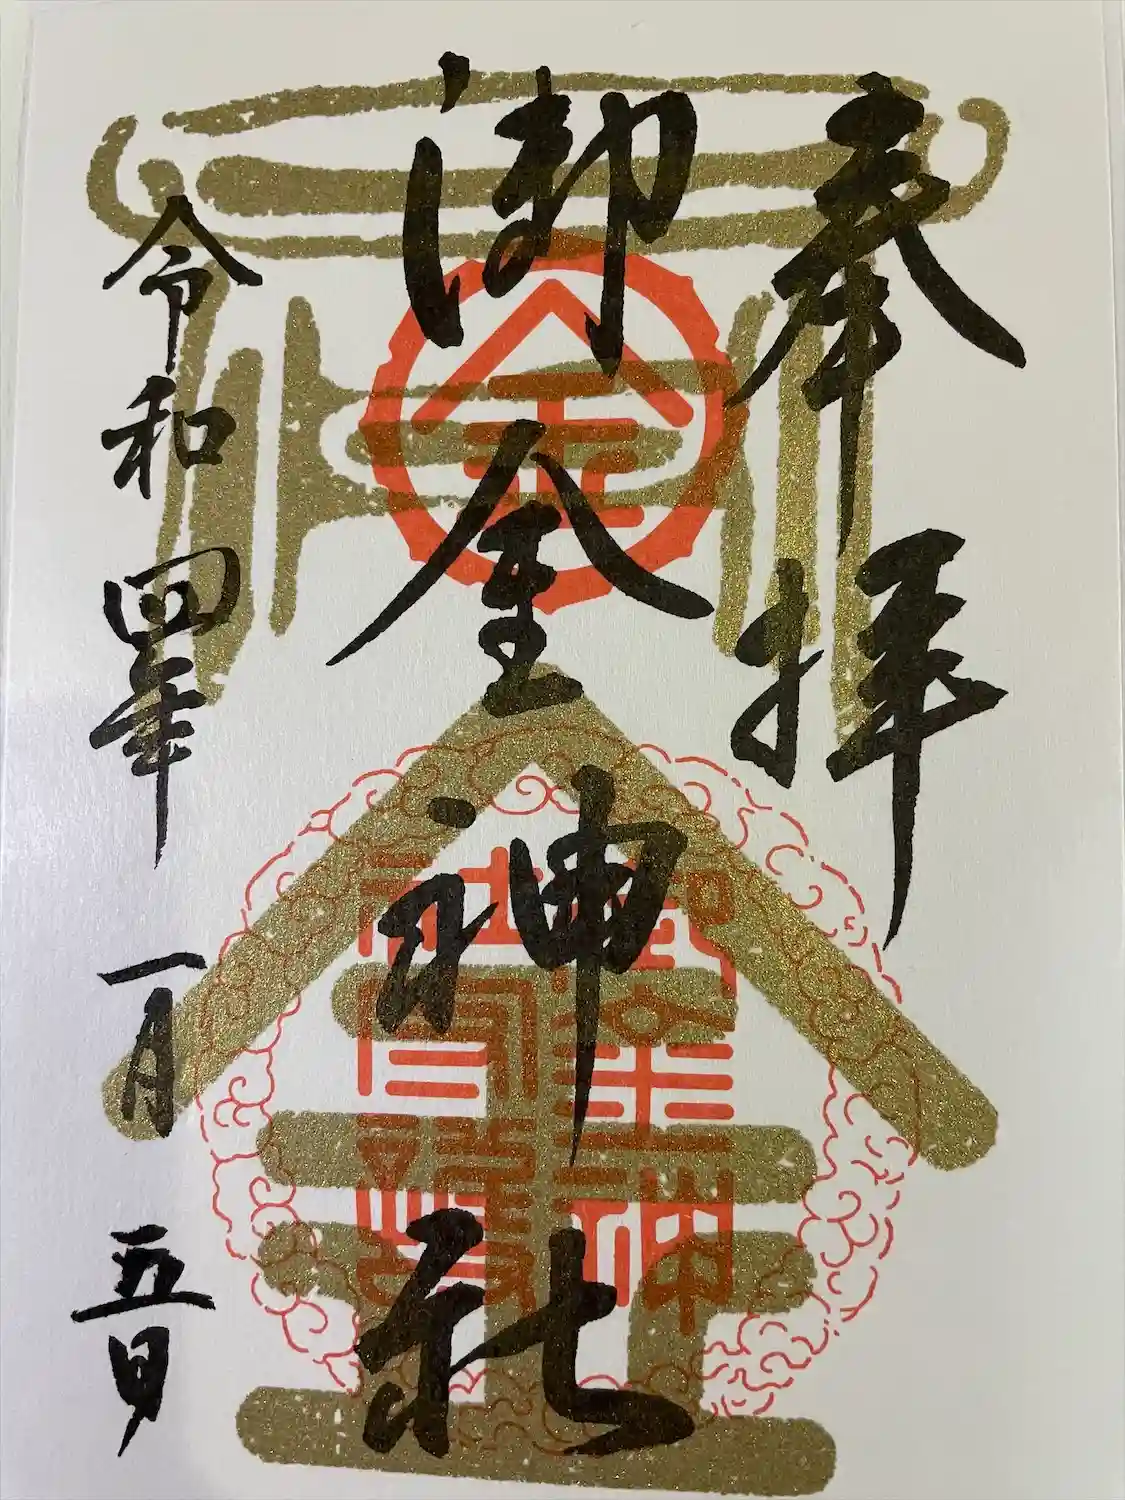 奉拝
御金神社
令和四年一月五日
金